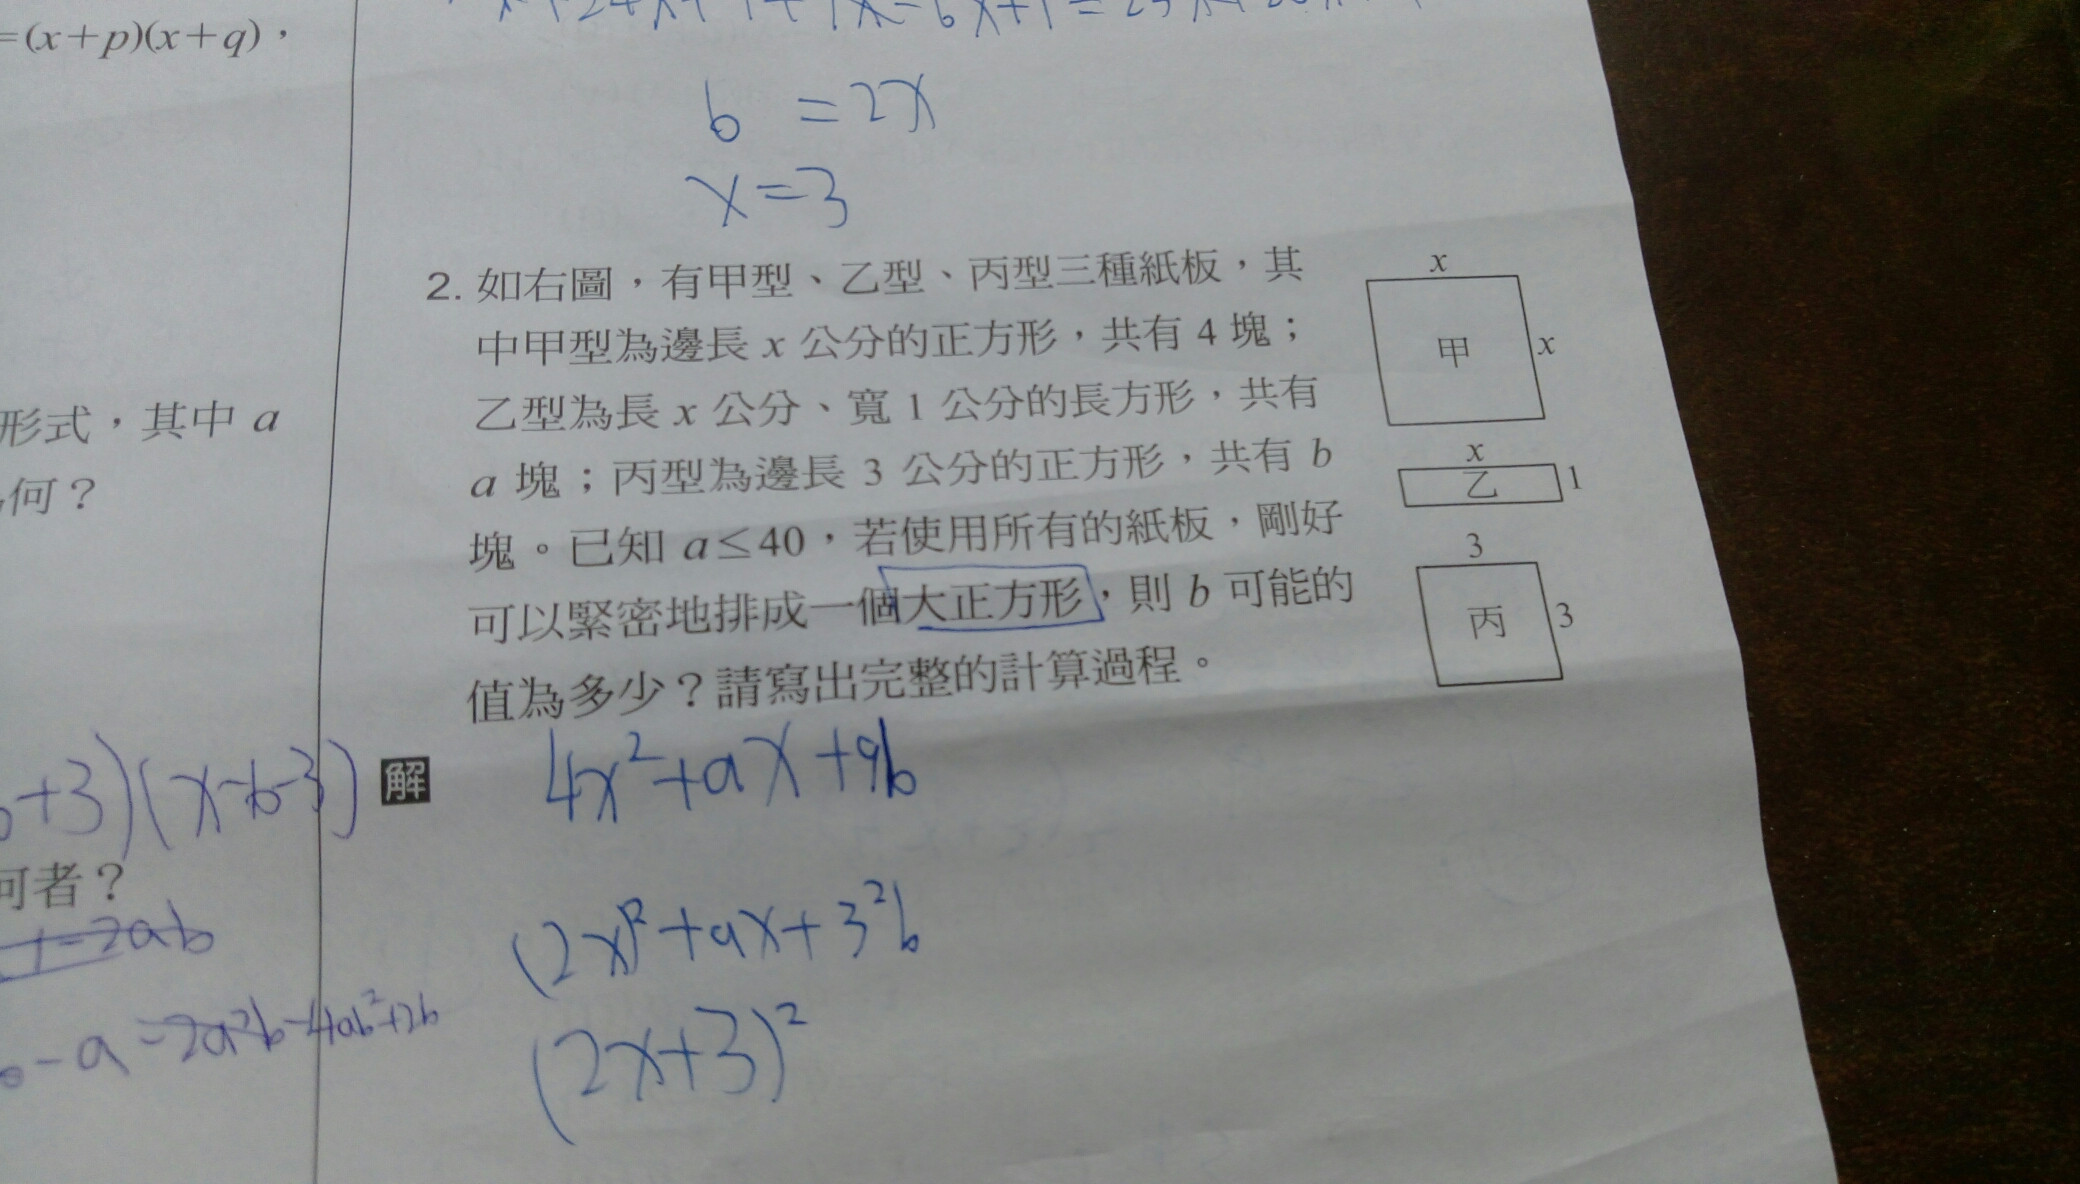 =(x+p)(x+q)，
b = 2x
x=3
形式，其中 a
何？
+3)(x-b-3)
何者？
-2ab
-a=2a²b-4ab²+2b
2. 如右圖，有甲型、乙型、丙型三種紙板，其
中甲型為邊長 x 公分的正方形，共有 4 塊；
乙型為長 x 公分、寬 1 公分的長方形，共有
a 塊；丙型為邊長 3 公分的正方形，共有 b
塊。已知 a≤40，若使用所有的紙板，剛好
可以緊密地排成一個大正方形，則 b 可能的
值為多少？請寫出完整的計算過程。
x
甲
x
x
乙
1
3
丙
3
解
4x²+ax+9b
(2x)²+ax+3²b
(2x+3)²